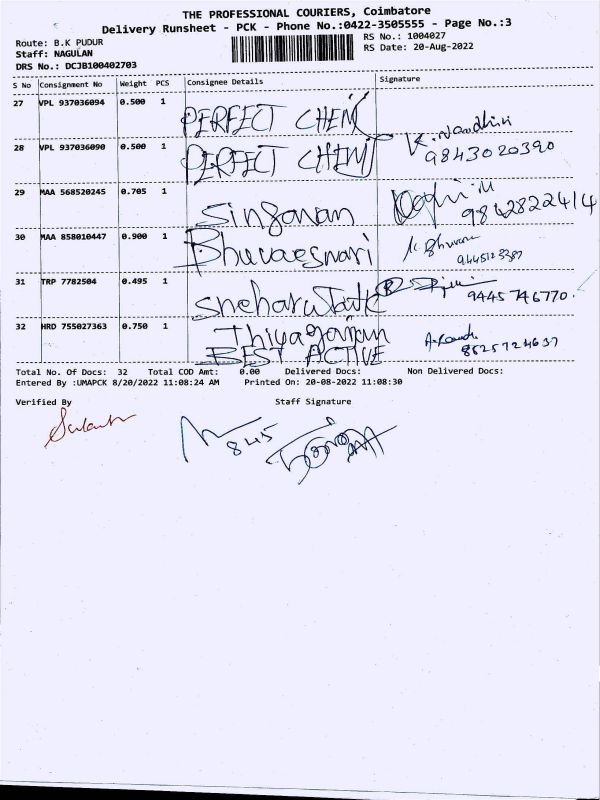 THE PROFESSIONAL COURIERS, Coimbatore
Delivery Runsheet - PCK - Phone No.:0422-3505555 - Page No.:3
Route: B.K PUDUR
RS No.: 1004027
Staff: NAGULAN
RS Date: 20-Aug-2022
DRS No.: DCJB100402703
S No Consignment No Weight PCS Consignee Details Signature
27 VPL 937036094 0.500 1 PERFECT CHEM K. Nandhini
28 VPL 937036090 0.500 1 PERFECT CHEM 9843020390
29 MAA 568520245 0.705 1 Singaravan 9842822414
30 MAA 858010447 0.900 1 Bhuvaeswari
31 TRP 7782504 0.495 1 9445746770
32 HRD 755027363 0.750 1 Thiyagarajan
BEST ACTIVE
Total No. Of Docs: 32 Total COD Amt: 0.00 Delivered Docs: Non Delivered Docs:
Entered By :UMAPCK 8/20/2022 11:08:24 AM Printed On: 20-08-2022 11:08:30
Verified By Staff Signature
845